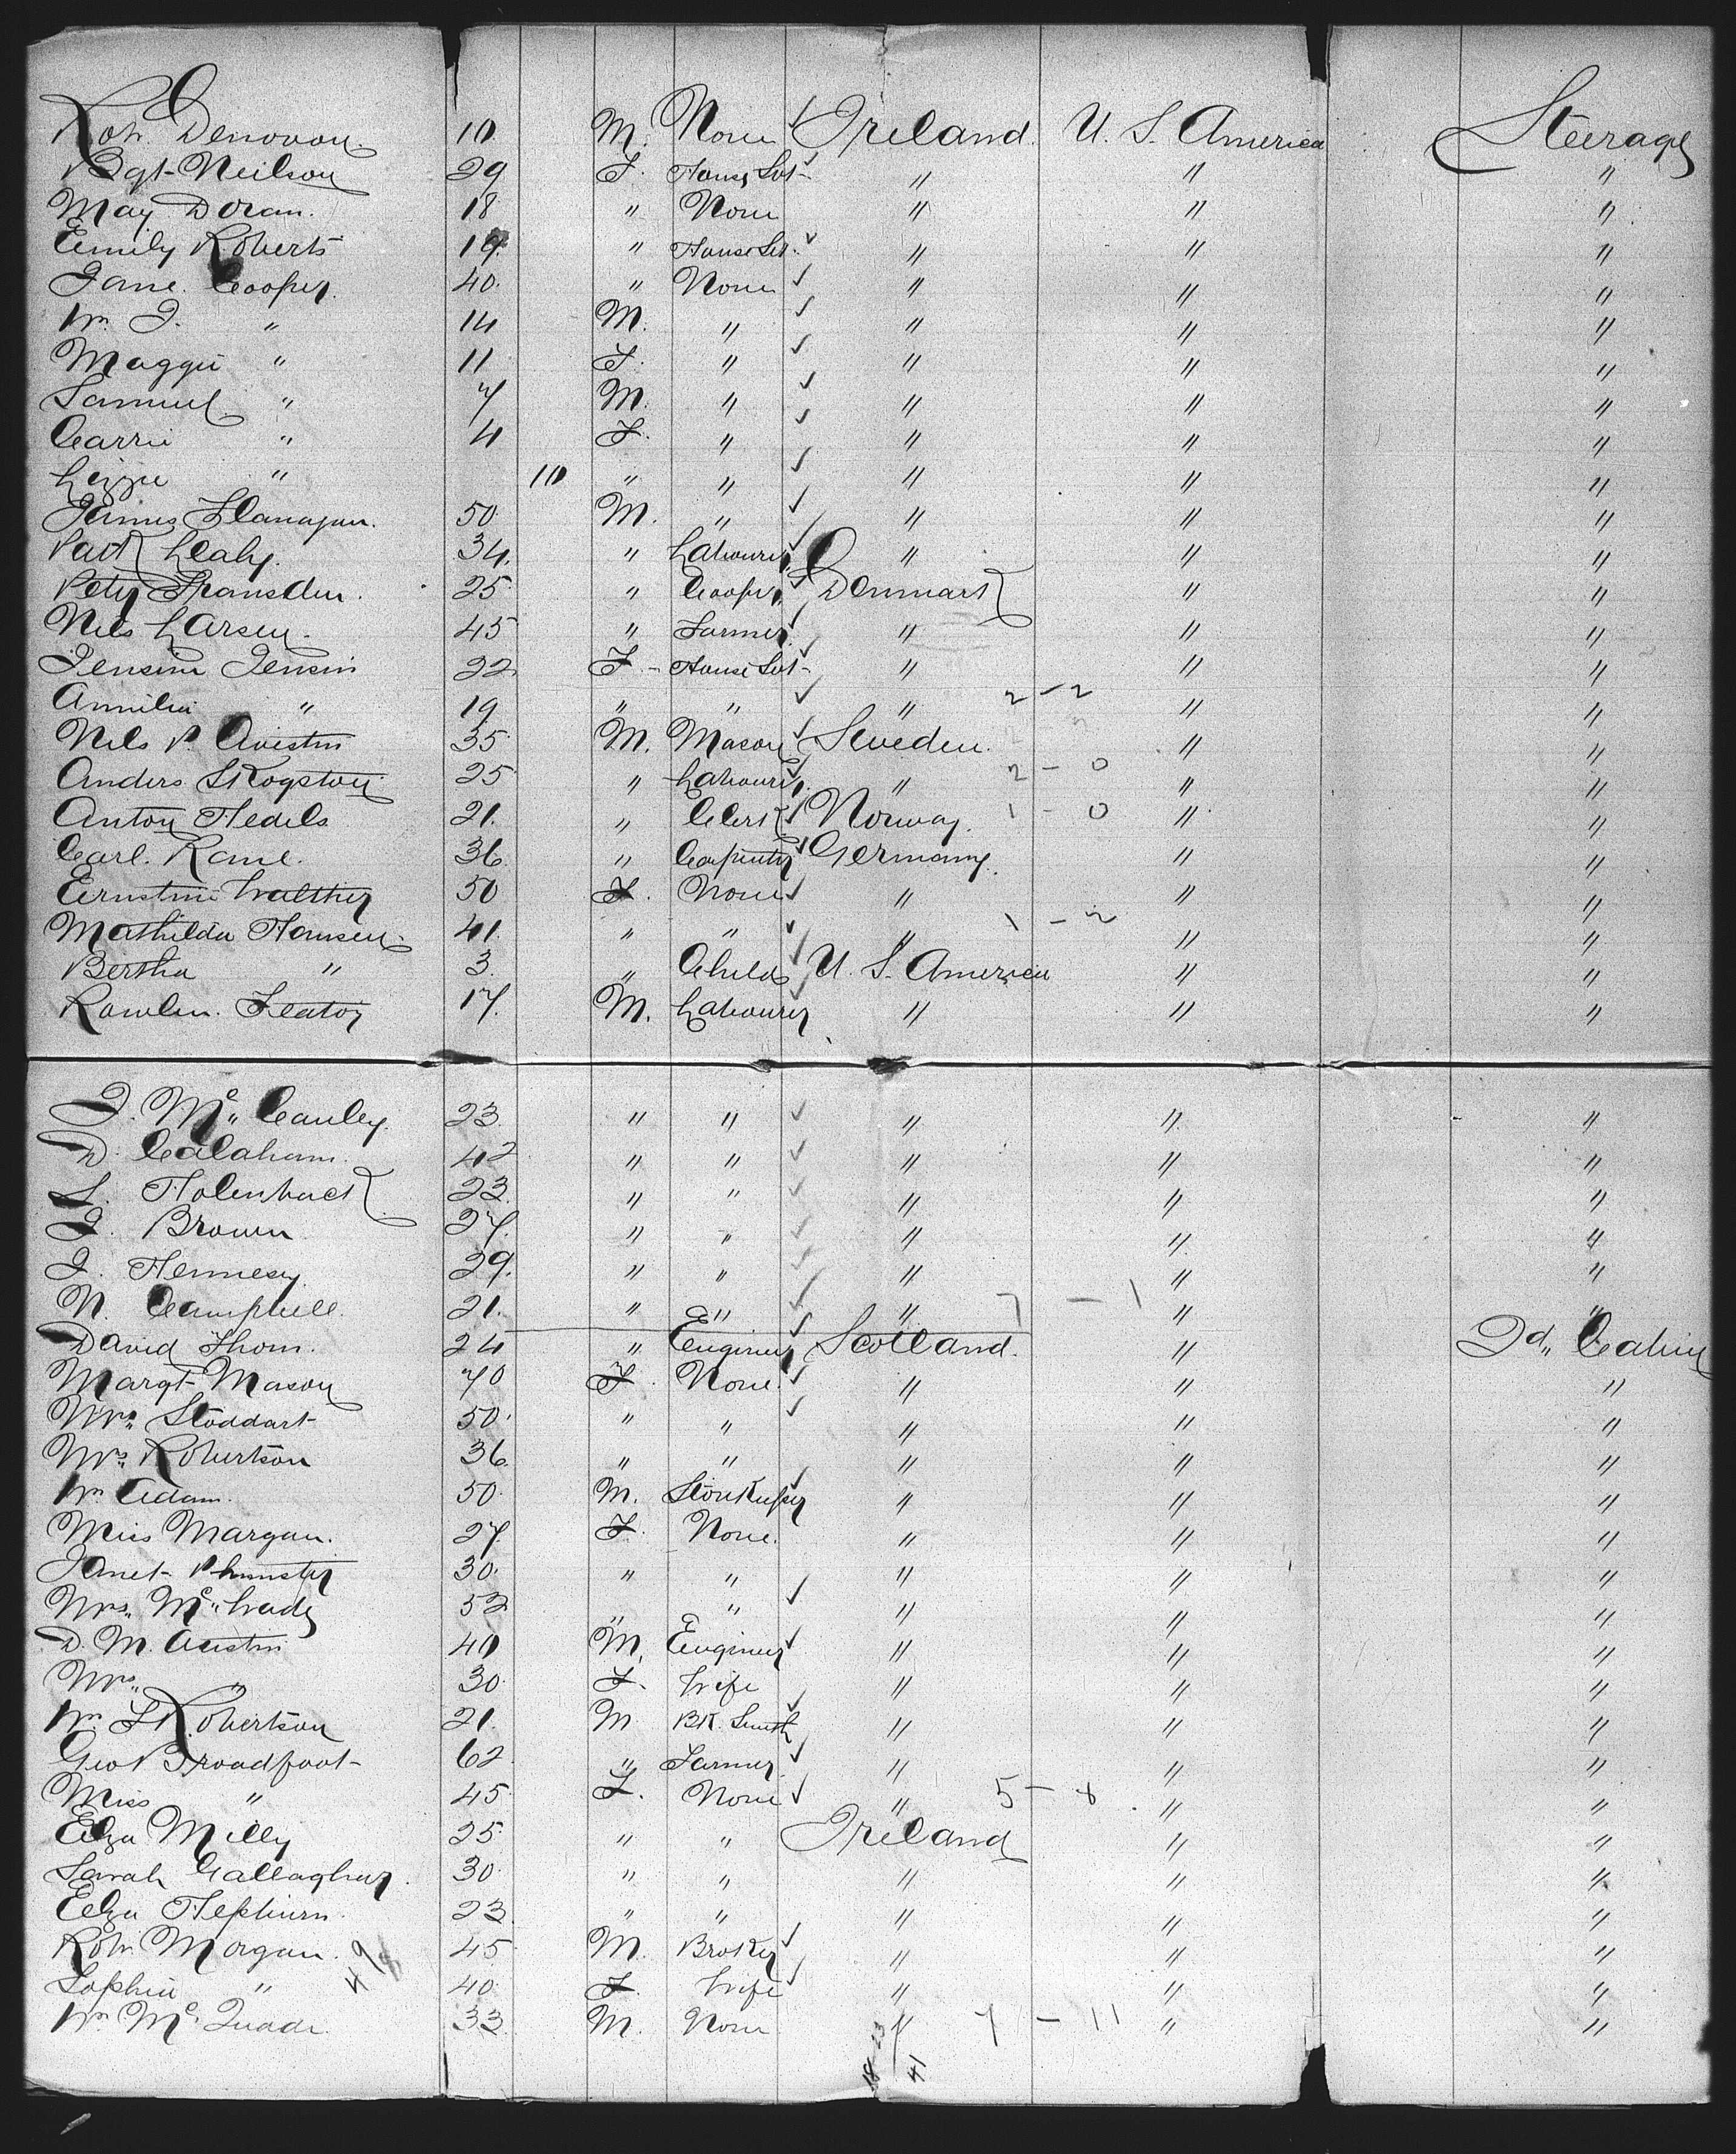 Robt. Denovan. 10 M. None Ireland. U. S. America Steerage
Bgt Neilson 29 F. House Svt " " "
May Doran. 18 " None " " "
Emily Roberts 19. " House Svt. " " "
Jane Cooper. 40. " None " " "
Wm. J. " 14 M. " " " "
Maggie " 11 F. " " " "
Samuel " 7 M. " " " "
Carrie " 4 F. " " " "
Lizzie " 10 " " " " "
James Flanagan. 50 M. " " " "
Patk Leahy. 34. " Labourer " " "
Peter Fransden. 25 " Cooper Denmark " "
Nels Larsen. 45 " Farmer " " "
Jensine Jensin 22 F. House Svt " " "
Amilia " 19 " " " 2 - 2 " "
Nels P. 35 M. Mason Sweden. " "
Anders 25 " Labourer. " 2 - 0 " "
Anton 21. " Clerk Norway. 1 - 0 " "
Carl. Rane. 36. " Carpenter Germany. " "
Ernstine Walther 50 F. None " " "
Mathilda Hansen. 41. " " " 1 - 2 " "
Bertha " 3. " Child U. S. America " "
17. M. Labourer " " "
J. Mc Cauley. 23 " " " " "
D. Calaham. 42 " " " " "
S. Holenback 23. " " " " "
J. Brown 27. " " " " "
J. Hennesy. 29. " " " " "
N. Campbell. 21. " " " 7 - 1 " "
David Thom. 24 " Engineer Scotland. " 2d. Cabin
Margt Mason 70 F. None. " " "
Mrs. Stoddart 50. " " " " "
Mrs. Robertson 36. " " " " "
Wm. Adam. 50. M. Storekeeper " " "
Miss Margan. 27. F. None. " " "
Janet 30. " " " " "
Mrs. Mc 52 " " " " "
D. M. Austin 40 M. Engineer " " "
Mrs. " 30. F. Wife " " "
Wm. S Robertson 21. M Bk. Smith " " "
Geo Broadfoot 62 " Farmer. " " "
Miss " 45 F. None " 5 - 8 " "
Eliza Milly 25. " " Ireland " "
Sarah Gallagher. 30. " " " " "
Eliza Hepburn. 23. " " " " "
Robt. Morgan. 45 M. Broker " " "
Sophia " 40. F. Wife " " "
Wm. Mc Quade. 33 M. None " 7 - 11 " "
18 23
41